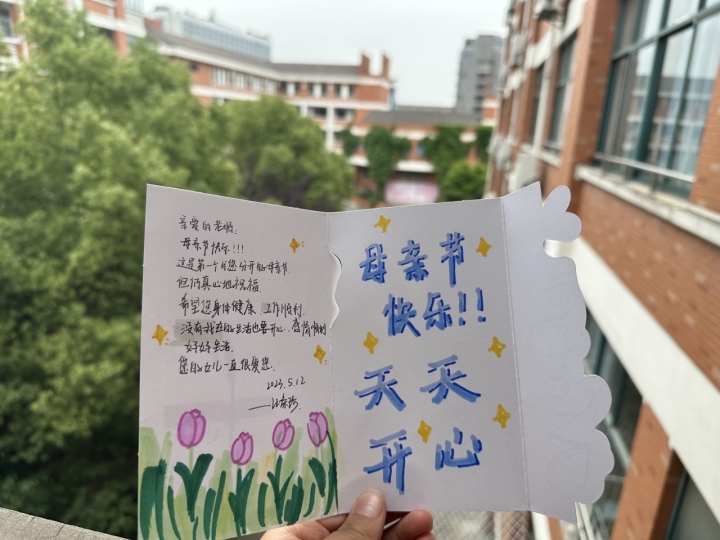 亲爱的老妈:
母亲节快乐!!!
这是第一个和您分开的母亲节
但仍真心地祝福
希望您身体健康 工作顺利.
没有我在的生活也要开心.
好好生活.
您的女儿一直很爱您.
2023.5.12
母亲节
快乐!!
天天
开心